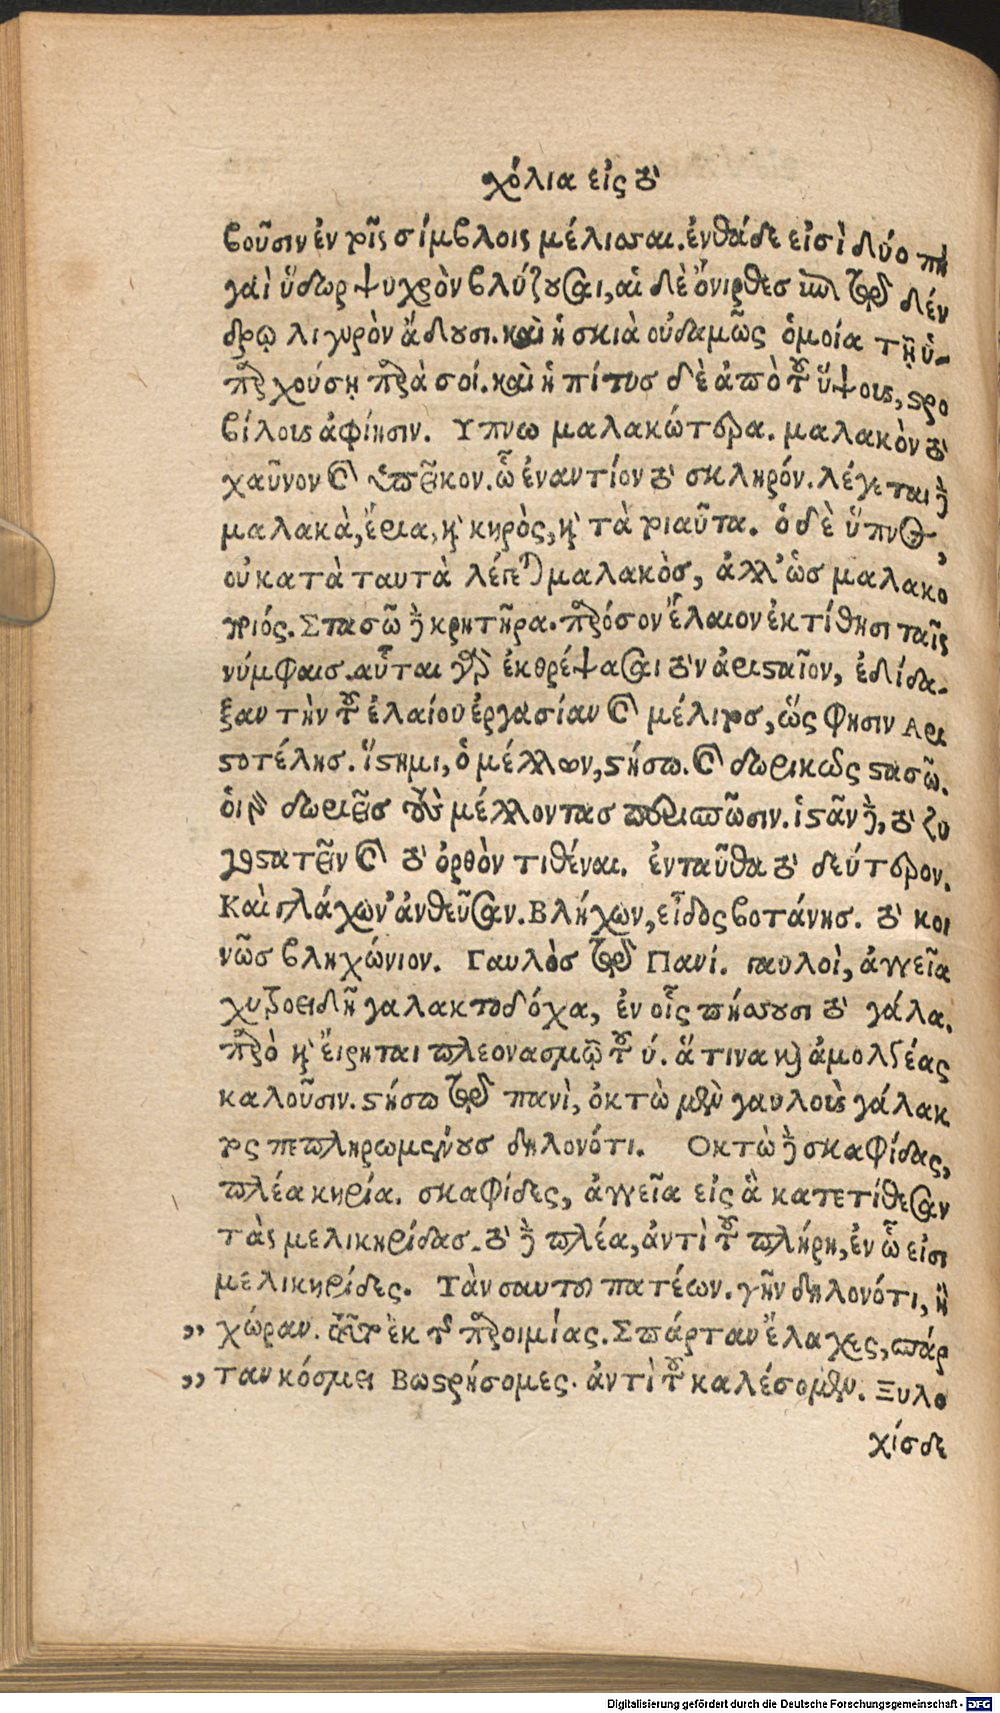 χόλια εἰς τὸ
βοῦσιν ἐν τοῖς σίμβλοις μέλισσαι. ἐνθάδε εἰσὶ δύο πη
γαὶ ὕδωρ ψυχρὸν βλύζουσαι, αἱ δὲ ὄνιρθες ἐπὶ τῷ δέν
δρῳ λιγυρὸν ᾄδουσι. καὶ ἡ σκιὰ οὐδαμῶς ὁμοία τῇ ὑ-
παρχούσῃ παρὰ σοί. καὶ ἡ πίτυς δὲ ἀπὸ τοῦ ὕψους, στρο
βίλους ἀφίησιν. Υπνω μαλακώτερα. μαλακὸν τὸ
χαῦνον καὶ ὑπεῖκον. ᾧ ἐναντίον τὸ σκληρόν. λέγεται δὲ
μαλακὰ, ἔρια, καὶ κηρὸς, καὶ τὰ τοιαῦτα. ὁ δὲ ὕπνος,
οὐ κατὰ ταυτὰ λέγεται μαλακὸς, ἀλλ' ὡς μαλακο
ποιός. Στασῶ δὲ κρητῆρα. πρόσον ἔλαιον ἐκτίθησι ταῖς
νύμφαις. αὗται γὰρ ἐκθρέψασαι τὸν ἀρισταῖον, ἐδίδα-
ξαν τὴν τοῦ ἐλαίου ἐργασίαν καὶ μέλιτος, ὥς φησιν Αρι
στοτέλης. ἵστημι, ὁ μέλλων, στήσω. καὶ δωρικῶς στασῶ.
οἱ γὰρ δωριεῖς τοὺς μέλλοντας περισπῶσιν. ἱστᾶν δὲ, τὸ ζυ
γοστατεῖν καὶ τὸ ὀρθὸν τιθέναι. ἐνταῦθα τὸ δεύτερον.
Καὶ γλάχων' ἀνθεῦσαν. Βλήχων, εἶδος βοτάνης. τὸ κοι
νῶς βληχώνιον. Γαυλὼς τῷ Πανί. γαυλοὶ, ἀγγεῖα
χυτροειδῆ γαλακτοδόχα, ἐν οἷς πήσσουσι τὸ γάλα.
παρὸ καὶ ἔιρηται πλεονασμῷ τοῦ ύ. ἅτινα καὶ ἀμολγέας
καλοῦσιν. στήσω τῷ πανὶ, ὀκτὼ μὲν γαυλοὺς γάλακ
τος πεπληρωμένους δηλονότι. Οκτὼ δὲ σκαφίδας,
πλέα κηρία. σκαφίδες, ἀγγεῖα εἰς ἃ κατετίθεσαν
τὰς μελικηρίδας. τὸ δὲ πλέα, ἀντὶ τοῦ πλήρη, ἐν ᾧ εἰσι
μελικηρίδες. Τὰν σαυτοῦ πατέων. γῆν δηλονότι, ἢ
„ χώραν. ἐκ τῆς παροιμίας. Σπάρταν ἔλαχες, σπάρ
„ ταν κόσμει Βωστρήσομες. ἀντὶ τοῦ καλέσομεν. Ξυλο
χίσδε
Digitalisierung gefördert durch die Deutsche Forschungsgemeinschaft - DFG